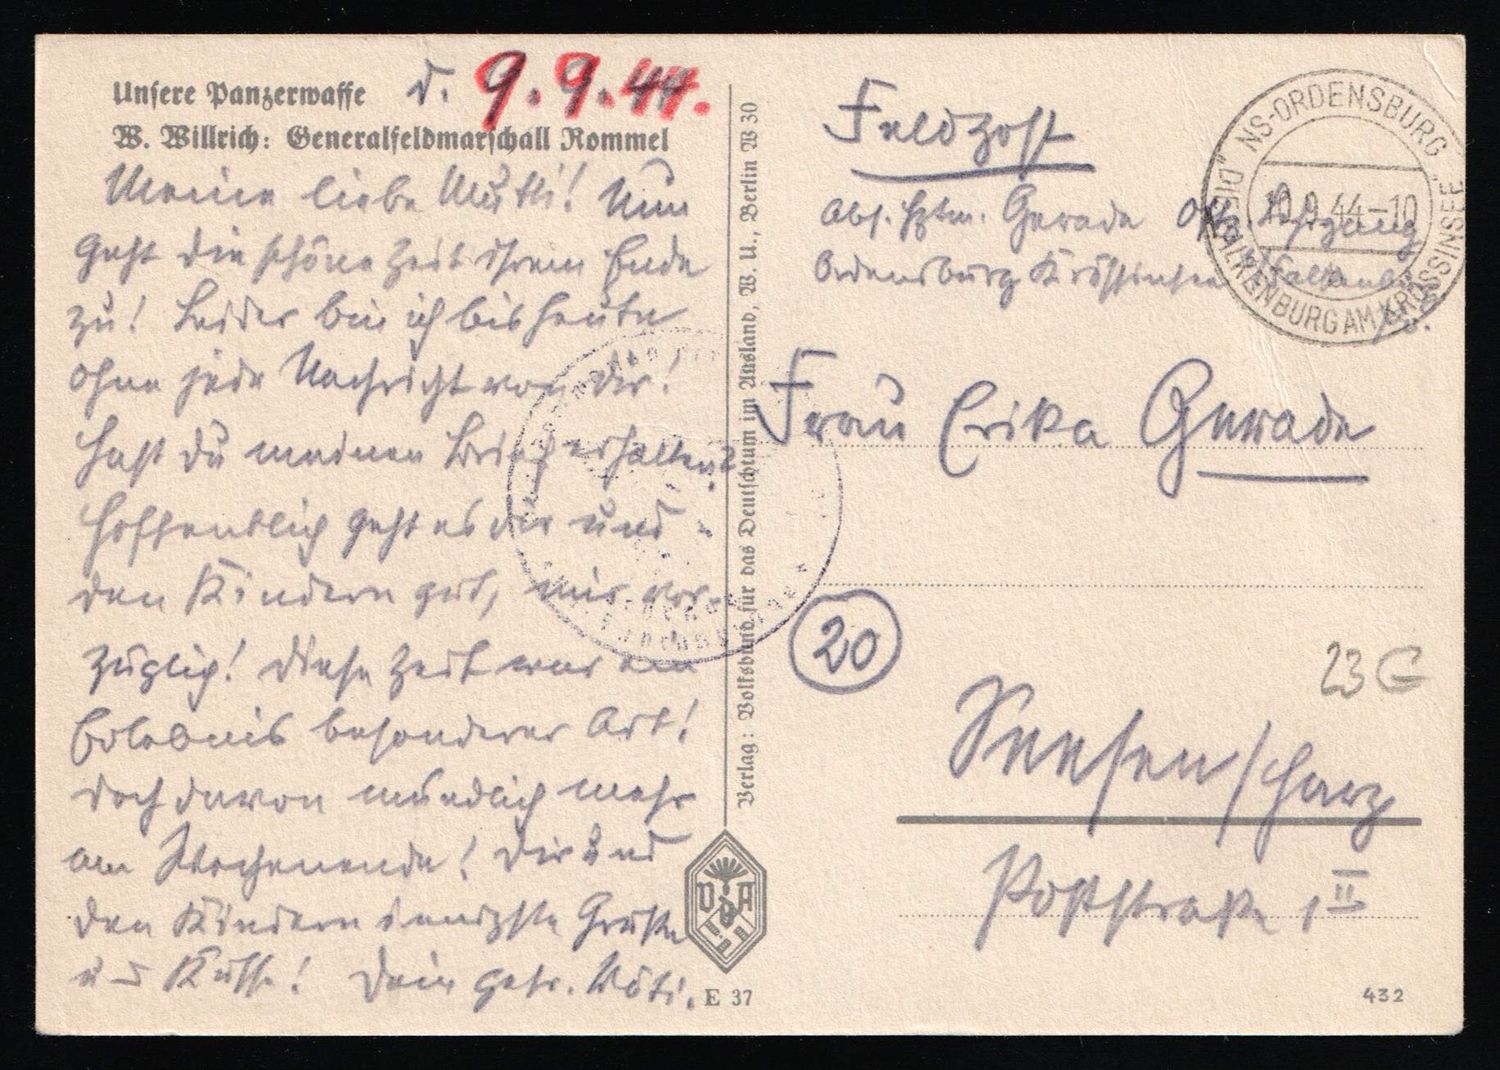 Unsere Panzerwaffe
d. 9.9.44.
W. Willrich: Generalfeldmarschall Rommel
Meine liebe Mutti! Nun
geht die schöne Zeit ihrem Ende
zu! Leider bin ich bis heute
ohne jede Nachricht von dir!
Hast du meinen Brief erhalten?
Hoffentlich geht es dir und
den Kindern gut, mir vor-
züglich! Diese Zeit war ein
Erlebnis besonderer Art!
Doch davon mündlich mehr
am Wochenende! Dir und
den Kindern innigste Grüße
und Küsse! Dein getr. Vati.
Verlag: Volksbund für das Deutschtum im Ausland, W. U., Berlin W 30
VDA
E 37
Feldpost
Abs. Hptm. Gerade
Ordensburg Krössinsee
"DIE NS-ORDENSBURG"
10.9.44-10
FALKENBURG AM KRÖSSINSEE
Frau Erika Gerade
20
23 G
Seesen/Harz
Poststraße 1 II
432